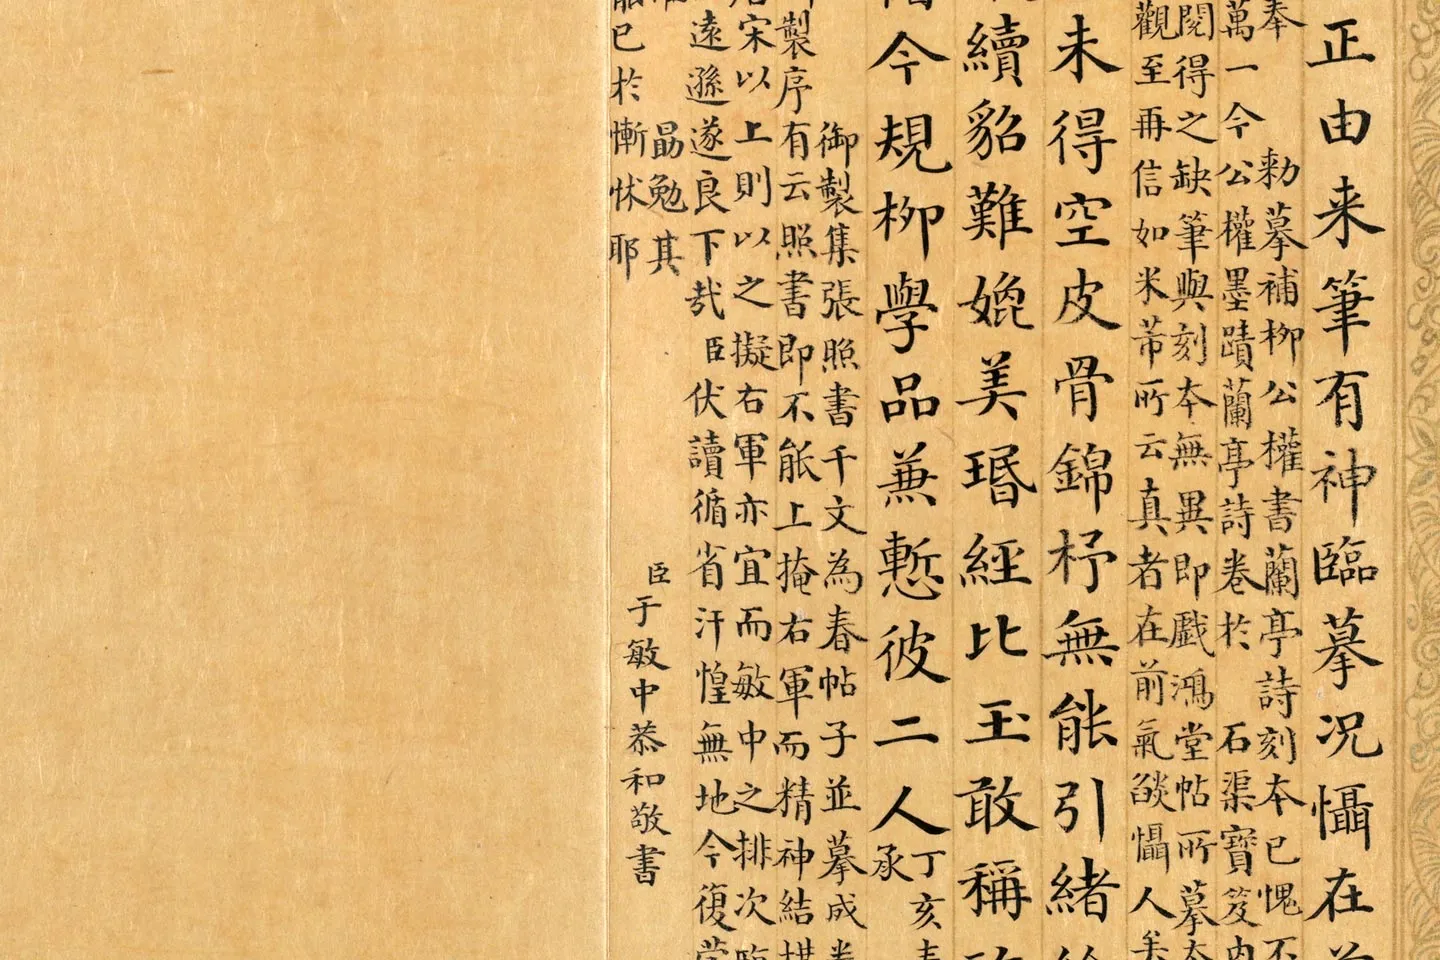 正由来筆有神臨摹況懾在
奉 勅摹補柳公權書蘭亭詩刻本已愧不
萬一今公權墨蹟蘭亭詩卷於 石渠寶笈内
閱得之缺筆與刻本無異即戲鴻堂帖所摹本
觀至再信如米芾所云真者在前氣燄懾人矣
未得空皮骨錦杼無能引緒
續貂難媲美瑉經比玉敢稱
今規柳學品兼慙彼二人
丁亥
承
御製集張照書千文為春帖子並摹成卷
製序有云照書即不能上掩右軍而精神結構
宋以上則以之擬右軍亦宜而敏中之排次臨
遠遜遂良下哉臣伏讀循省汗惶無地今復
勗勉其
已於慚怵耶
臣于敏中恭和敬書